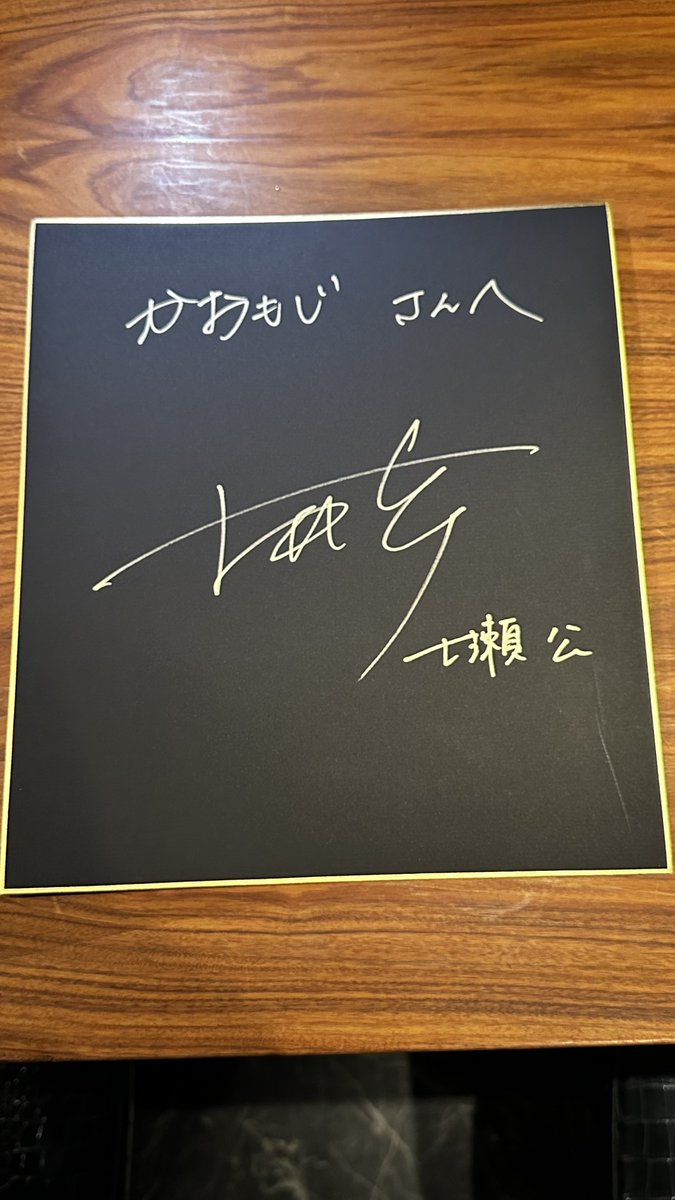 かおもじ さんへ
七瀬 公